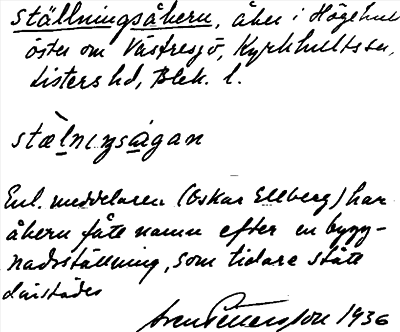 Ställningsåkern, åker i Högehult
öster om Västresjö, Kyrkhults sn,
Listers hd, Blek. l.
stælnıŋsågan
Enl. meddelaren (Oskar Ellberg) har
åkern fått namn efter en bygg-
nadsställning, som tidare stått
därstädes
Sven Pettersson 1936